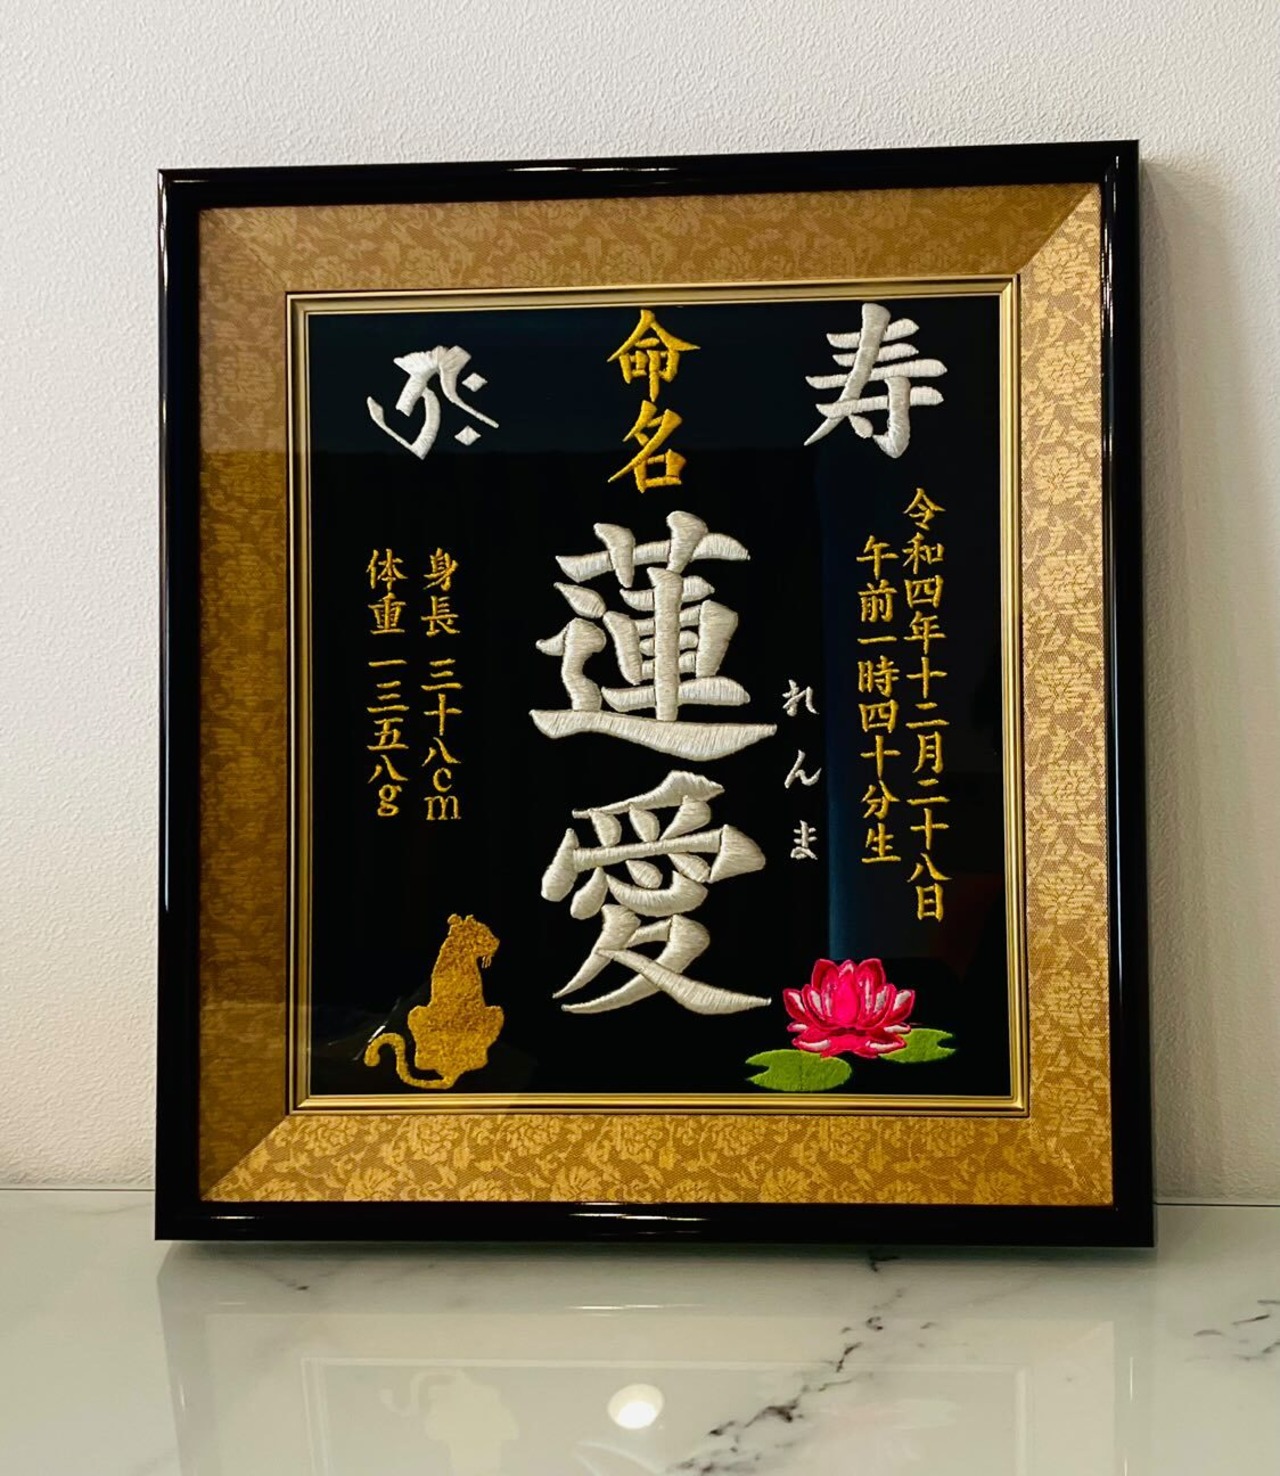 寿
命名
令和四年十二月二十八日
午前一時四十分生
れんま
蓮愛
身長 三十八cm
体重 一三五八g